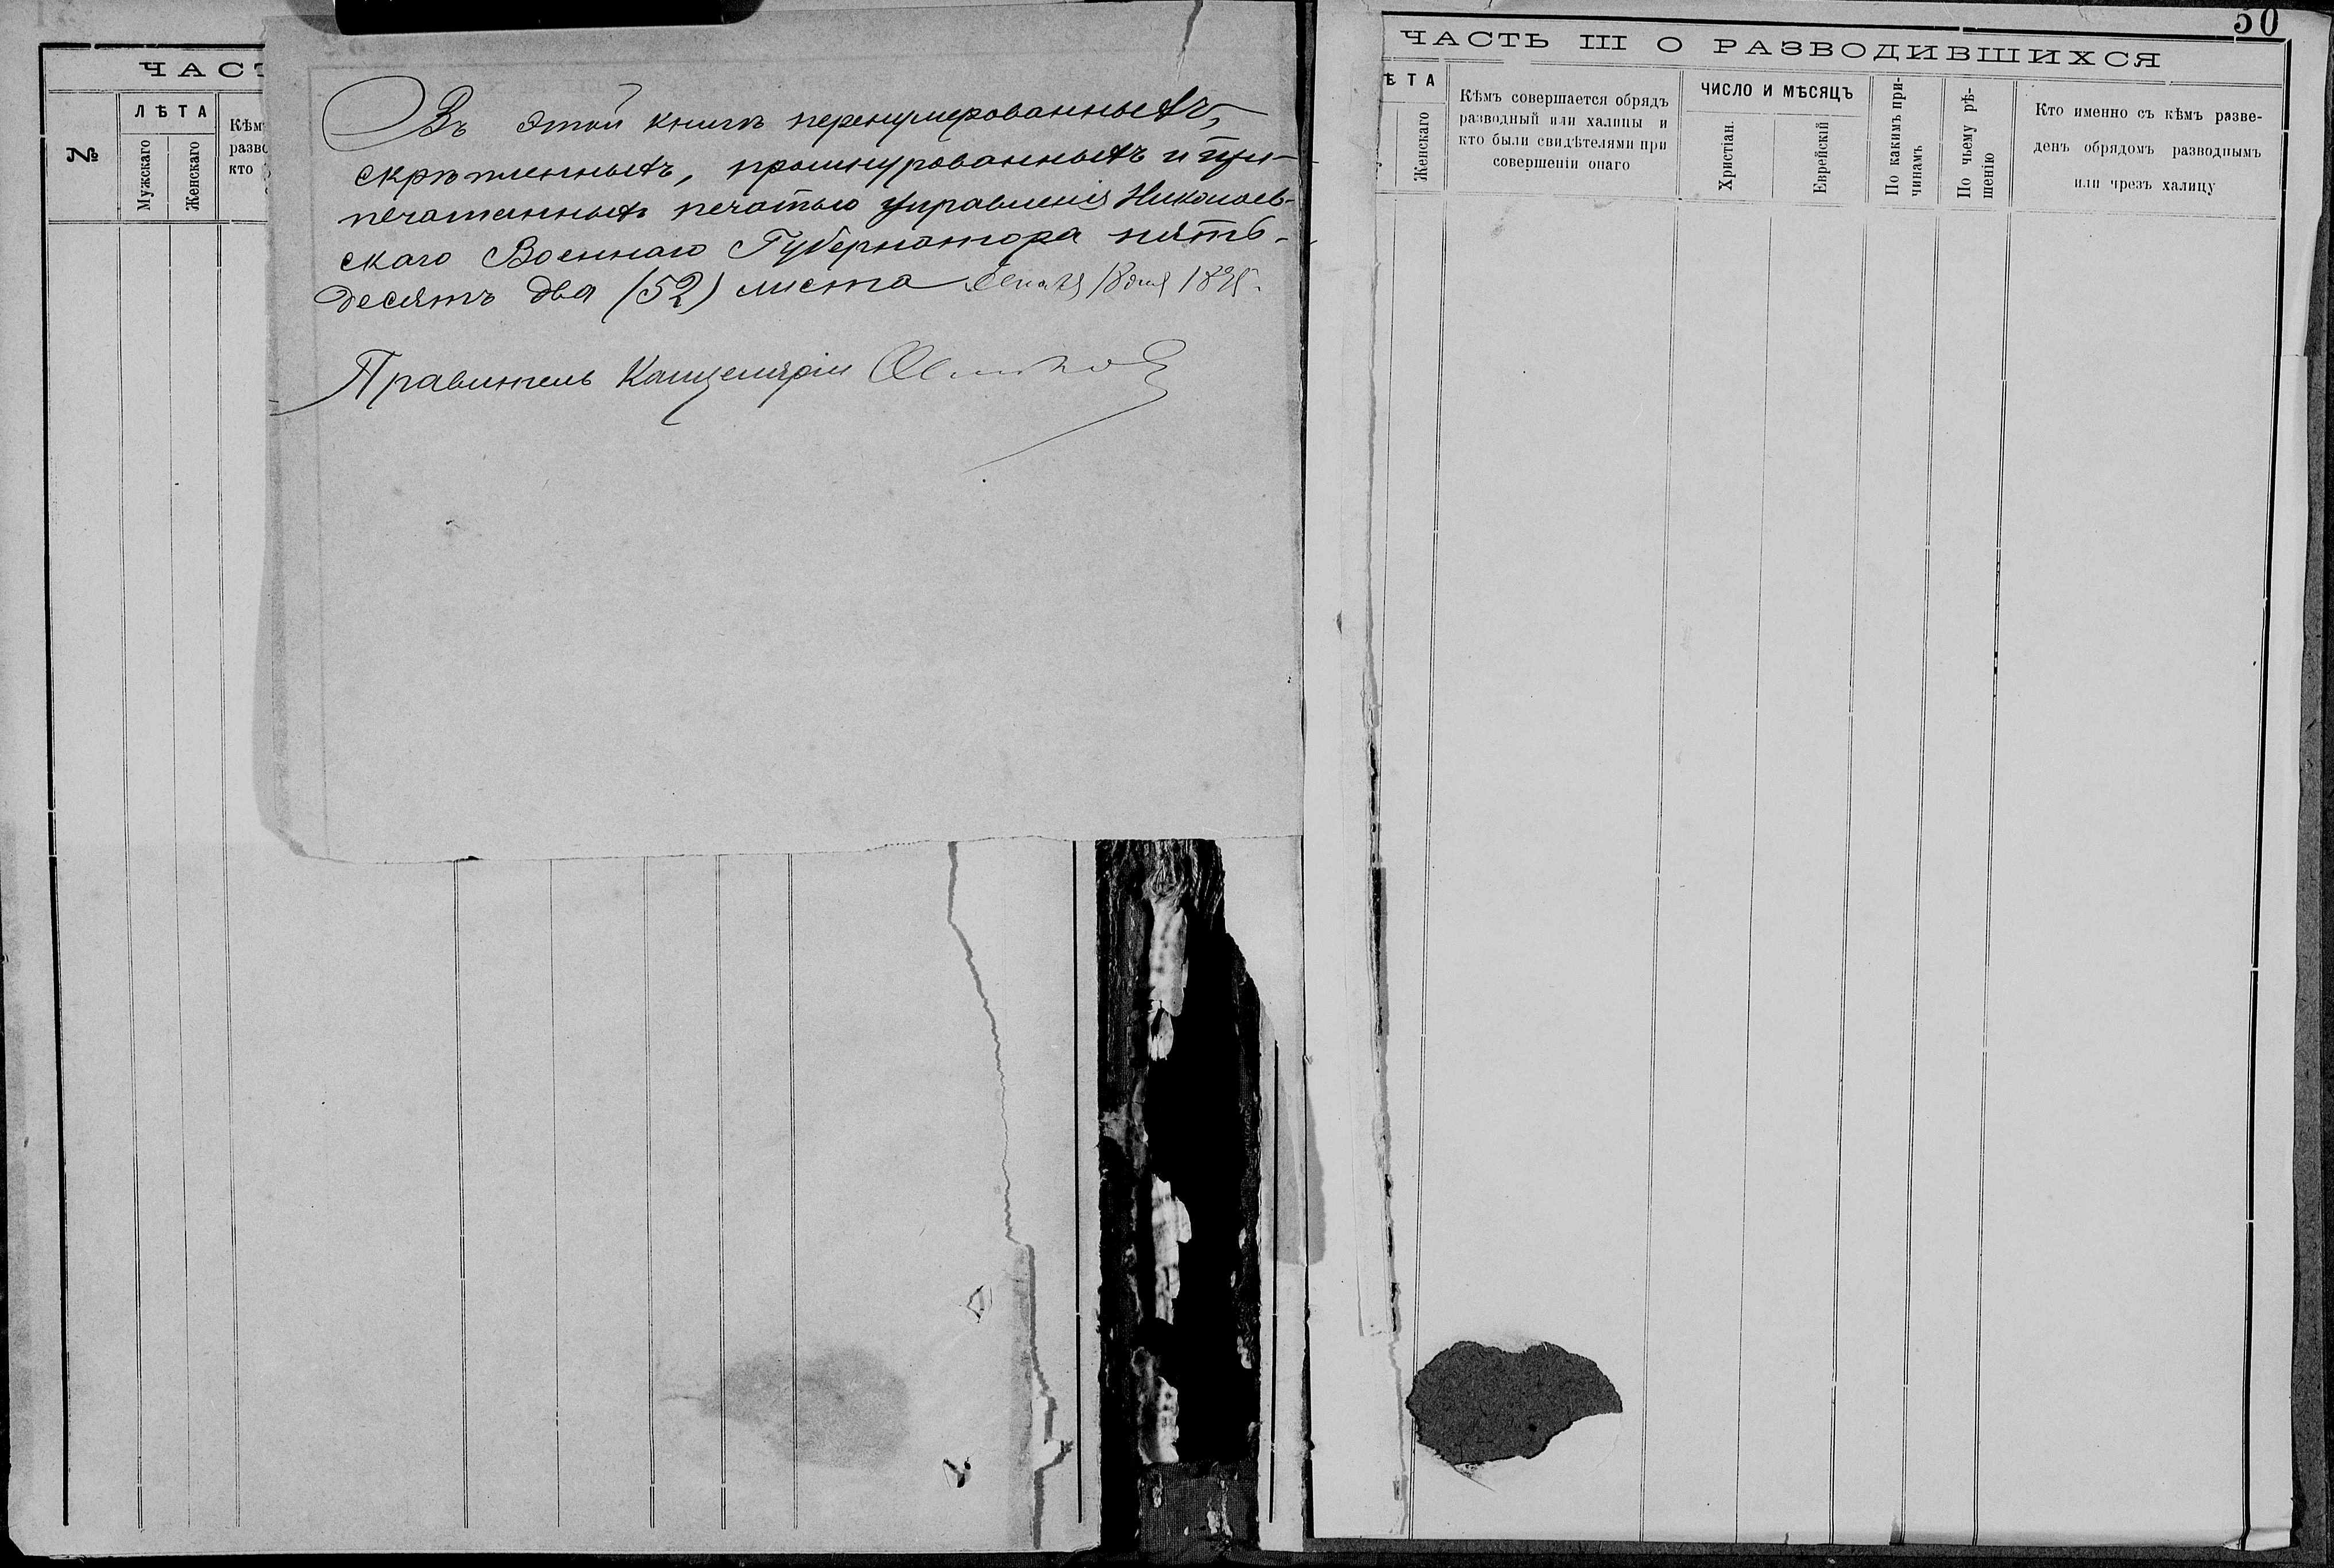 ЧАСТ
№
ЛѢТА
Мужскаго
Женскаго
Кѣм
разво
кто
Въ этой книгѣ перенумерованныхъ,
скрѣпленныхъ, прошнурованныхъ и при-
печатанныхъ печатью управленія Николаев-
скаго Военнаго Губернатора пять-
десятъ два (52) листа
Правитель Канцеляріи
50
ЧАСТЬ III О РАЗВОДИВШИХСЯ
ѢТА
Женскаго
Кѣмъ совершается обрядъ
разводный или халицы и
кто были свидѣтелями при
совершеніи онаго
ЧИСЛО И МѢСЯЦЪ
Христіан.
Еврейскій
По какимъ при-
чинамъ
По чьему рѣ-
шенію
Кто именно съ кѣмъ разве-
денъ обрядомъ разводнымъ
или чрезъ халицу